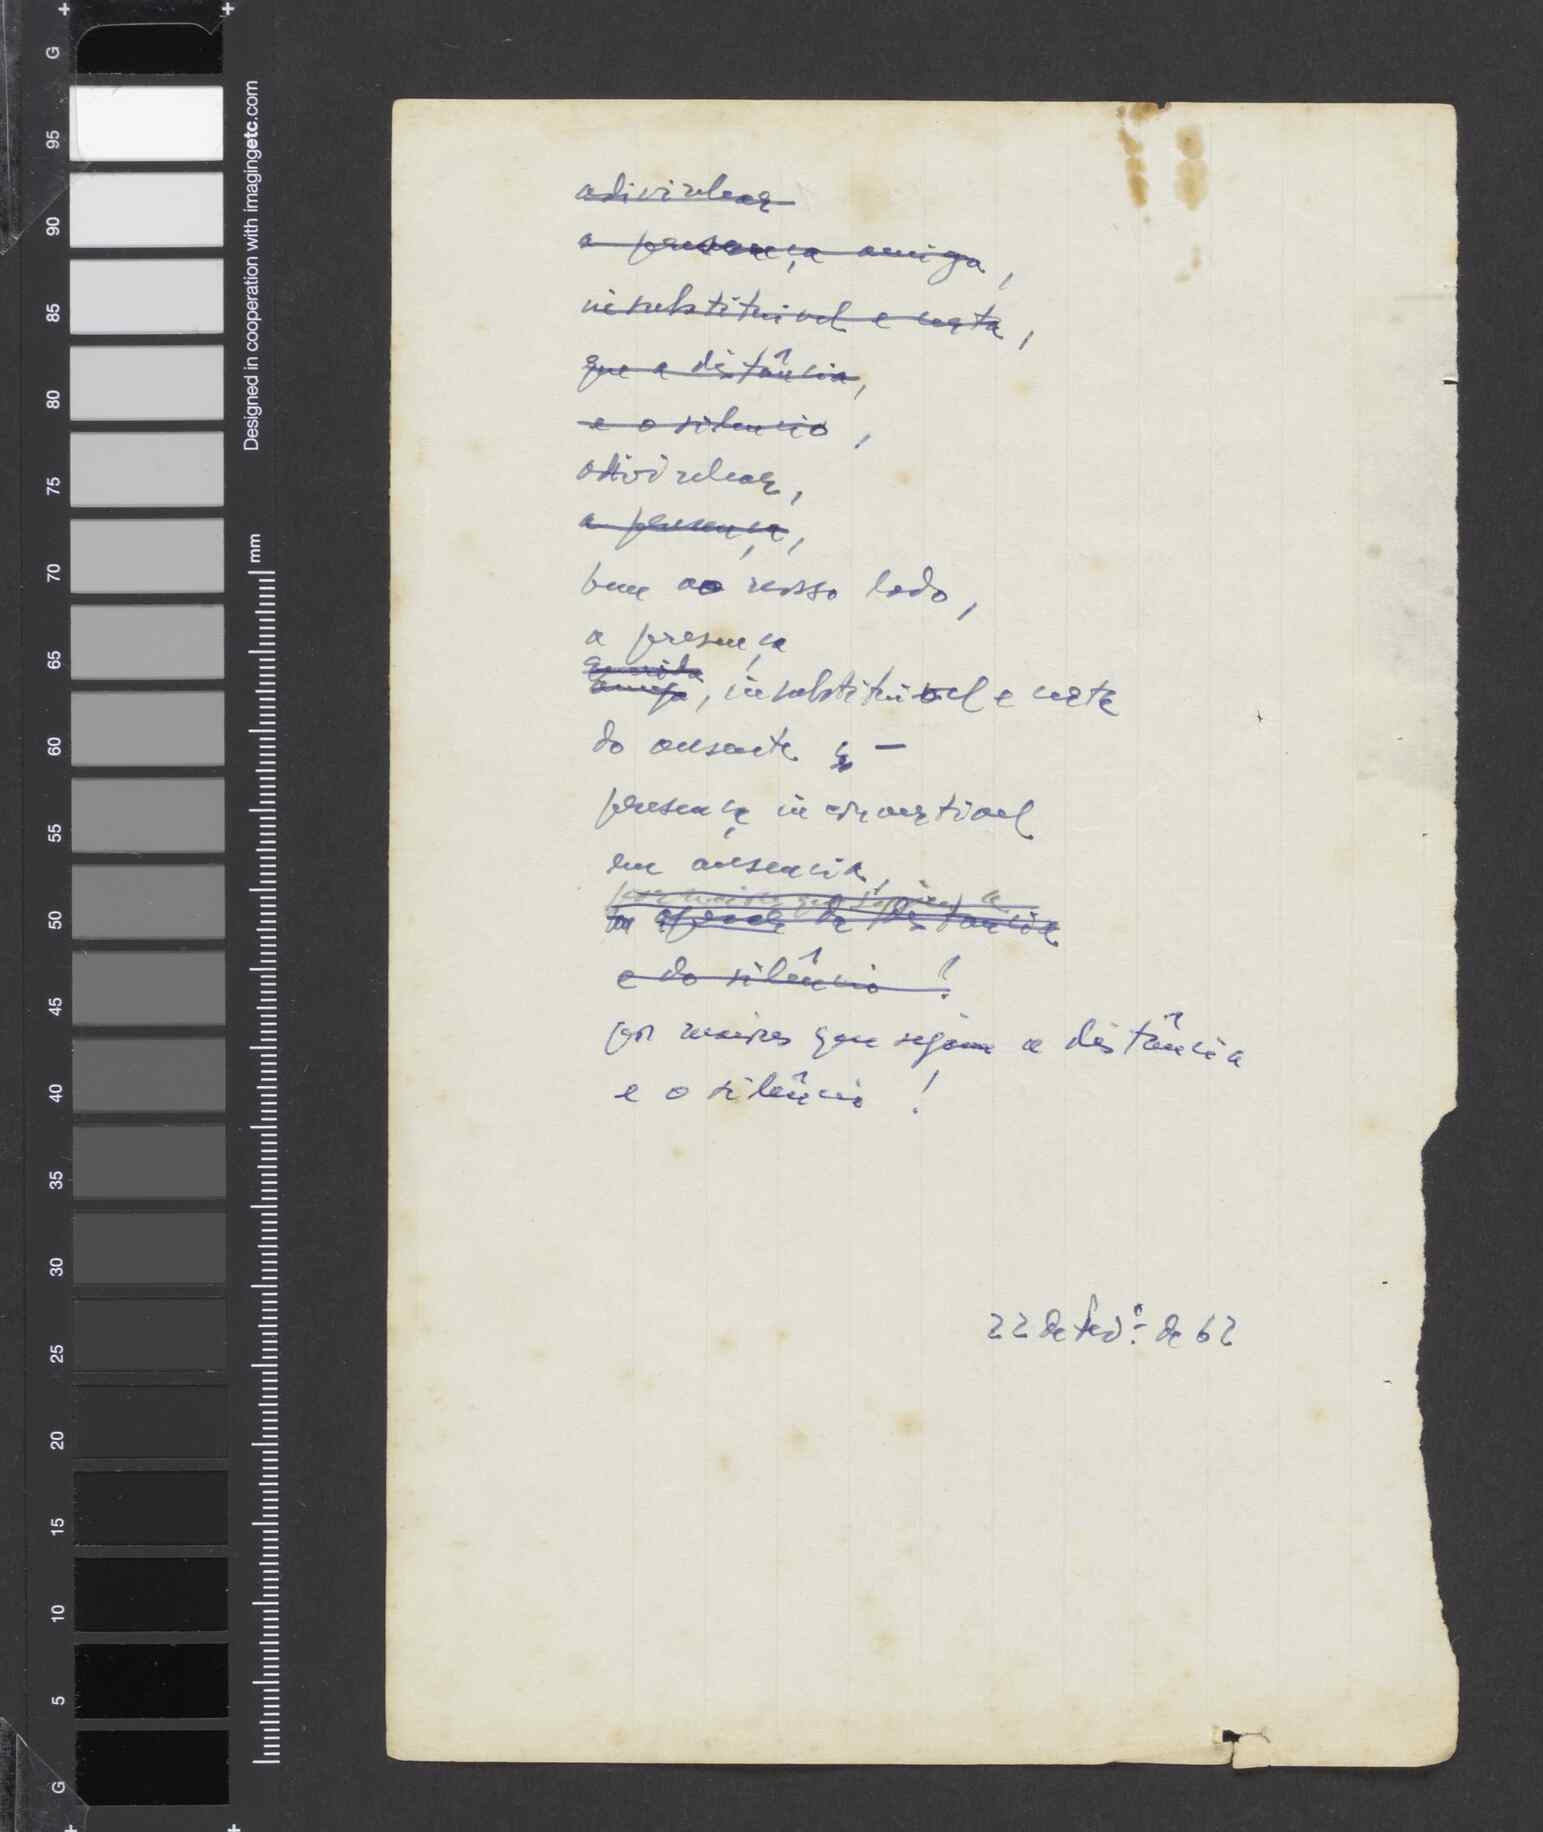 G
95
90
85
80
75
70
65
60
55
50
45
40
35
30
25
20
15
10
5
G
Designed in cooperation with imagingetc.com
mm
adivinhar
a presença amiga,
insubstituivel e certa,
que a distância,
e o silencio,
adivinhar,
a presença,
bem ao nosso lado,
a presença
querida
amiga, insubstituivel e certa
do ausente –
presença inconvertivel
em ausencia,
por maiores que sejam a
a da distancia
e do silêncio!
por maiores que sejam a distância
e o silêncio!
22 de fevº de 62